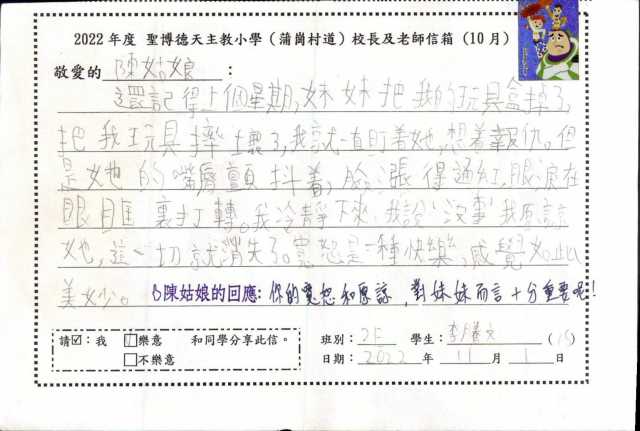 2022 年度 聖博德天主教小學（蒲崗村道）校長及老師信箱（10 月）
敬愛的 陳姑娘：
還記得上個星期,妹妹把我的玩具盒掉了,
把我玩具摔壞了,我就一直盯着她,想着報仇。但
是她的嘴唇顫抖着,臉漲得通紅,眼淚在
眼眶裏打轉。我冷靜下來,我說“沒事”我原諒
她,這一切就消失了。寬恕是一種快樂,感覺如此
美妙。 陳姑娘的回應: 你的寬恕和原諒，對妹妹而言十分重要呢!
請☑：我 ☑樂意 和同學分享此信。
□不樂意
班別：2E 學生：李 文 (15)
日期：2022 年 11 月 1 日